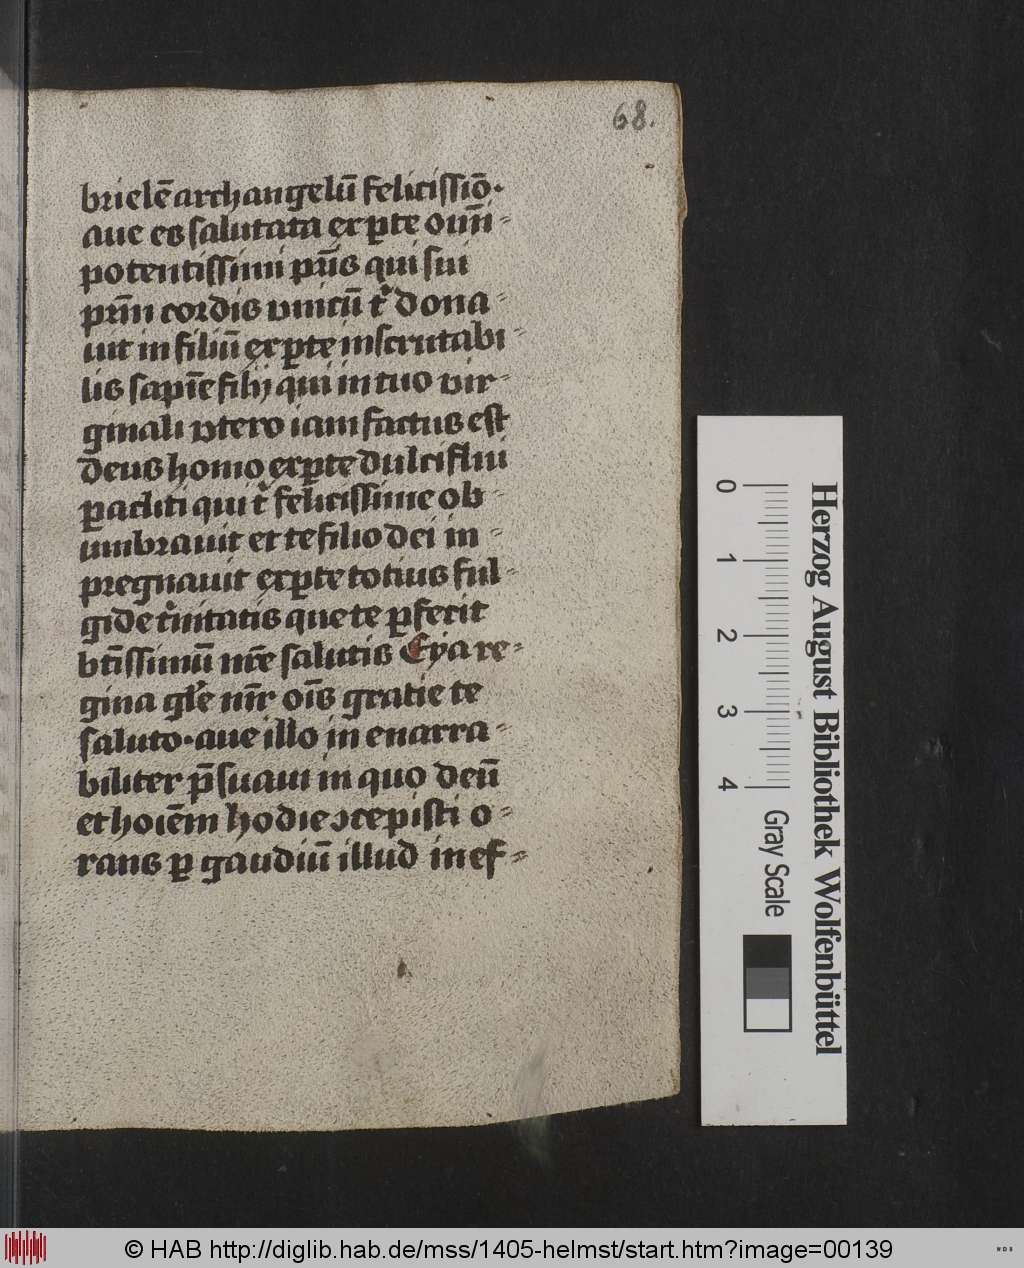 68.
brielē archangelū felicissiō·
aue es salutata ex p̱te om̄i-
potentissimi pr̄is qui sui
pr̄ni cordis vnicū t' dona-
uit in filiū ex p̱te inscrutabi-
lis sapiē filij qui in tuo vir-
ginali vtero iam factus est
deus homo ex p̱te dulciflui
p̱acliti qui t' felicissime ob-
umbrauit et te filio dei in-
pregnauit ex p̱te totius ful-
gide t'initatis que te p̱ferit
bt̄issimū nr̄e salutis Eya re-
gina gl'e mr̄ oīs gratie te
saluto·aue illo in enarra-
biliter p̄suaui in quo deū
et hoiēm hodie ↄcepisti o-
rans p̱ gaudiū illud in ef-
0 1 2 3 4
Gray Scale
Herzog August Bibliothek Wolfenbüttel
© HAB http://diglib.hab.de/mss/1405-helmst/start.htm?image=00139